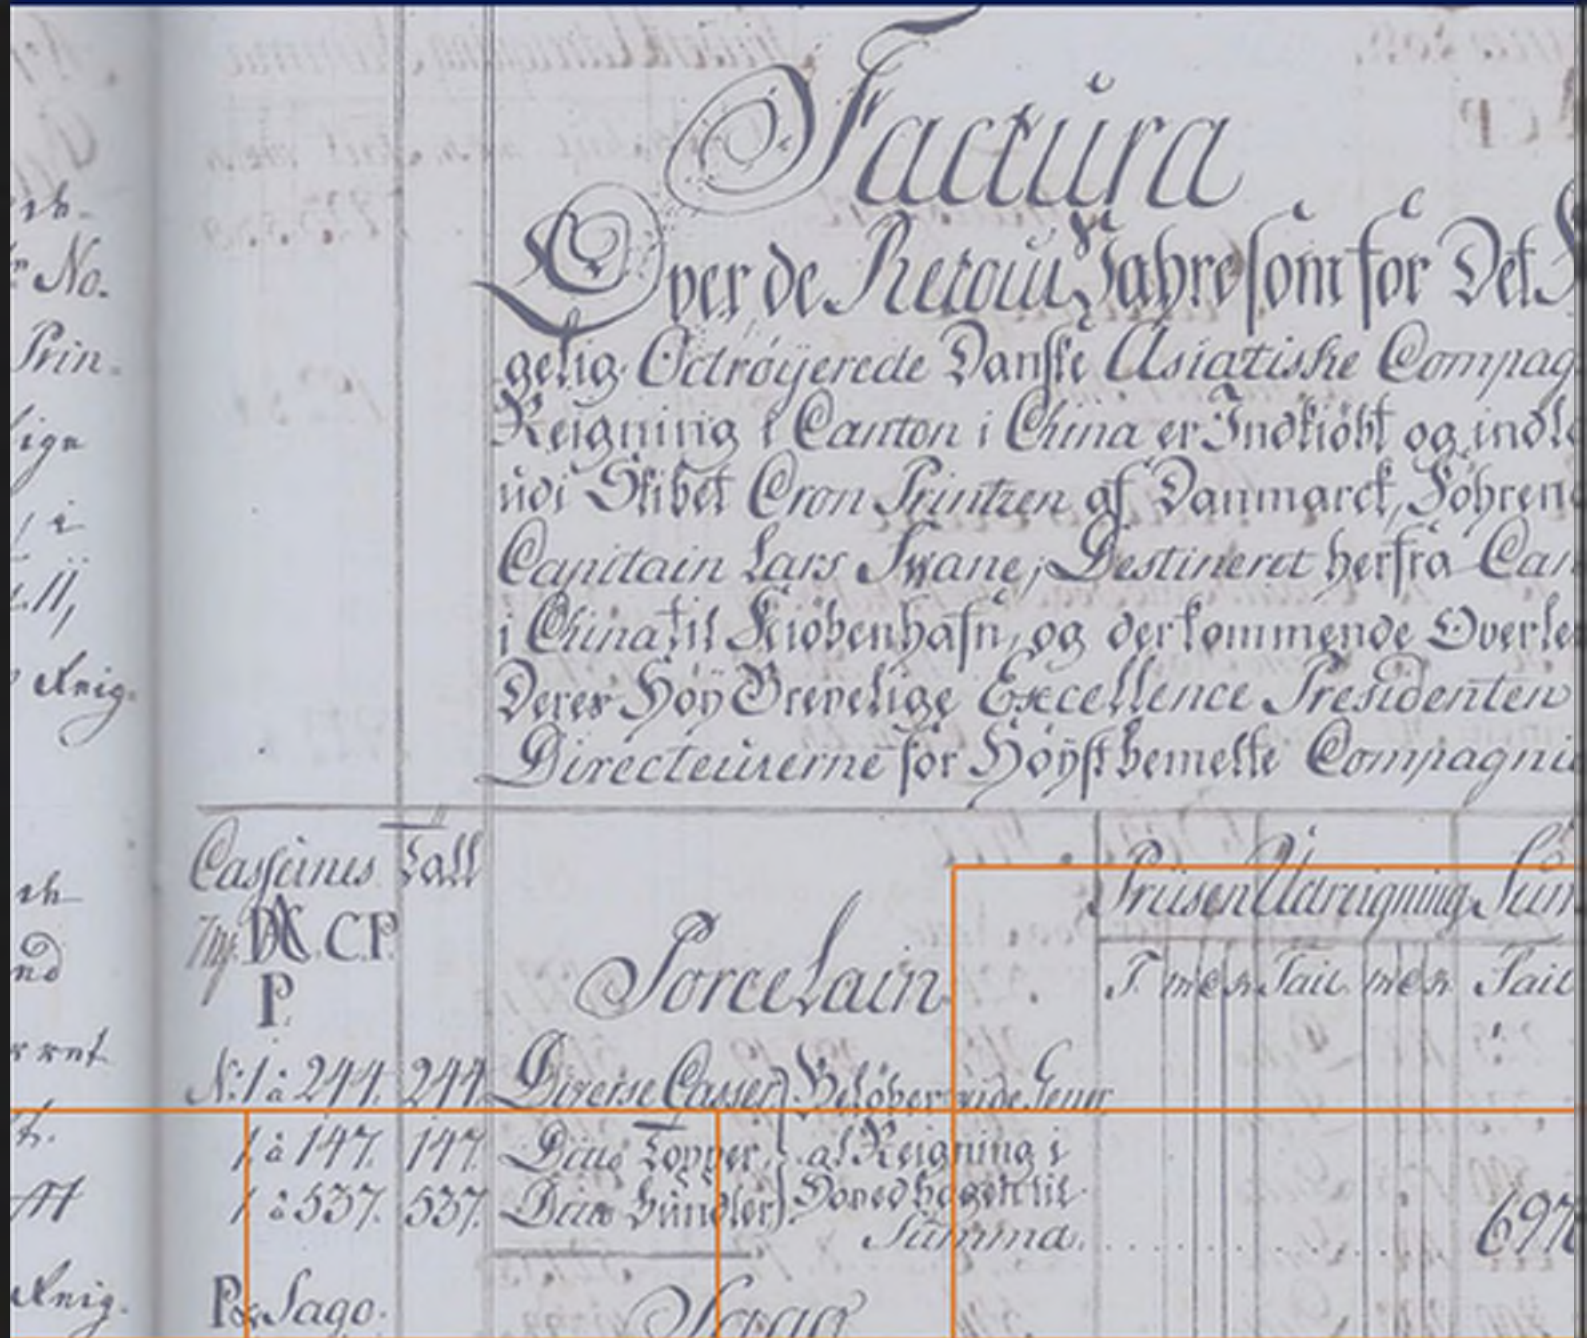 Factura
Over de Retour Vahre som for Det K
gelig Octrøÿerede Danske Asiatiske Compag
Reigning i Canton i China er Indkiøbt og indl
udi Skibet Cron Printzen af Danmarck, Føhren
Capitain Lars Swane, Destineret herfra Can
i China til Kiøbenhafn, og der kommende Overle
Deres Høy Grevelige Excellence Presidenten
Directeurerne for Høyst bemelte Compagni
Casseines Tall
CP.
P.
Porcelain
Prisen Udreigning Sum
T. m c n Tail m c n Tail
No. 1 à 244. 244. Diverse Casser Beløber vide Gener
1 à 147. 147. Dito Topper al Reigning i
1 à 537. 537. Dito Bundter Hoved bogen til
Summa. 697
P Sago.
Sago
No.
Prin-
lige
Reig-